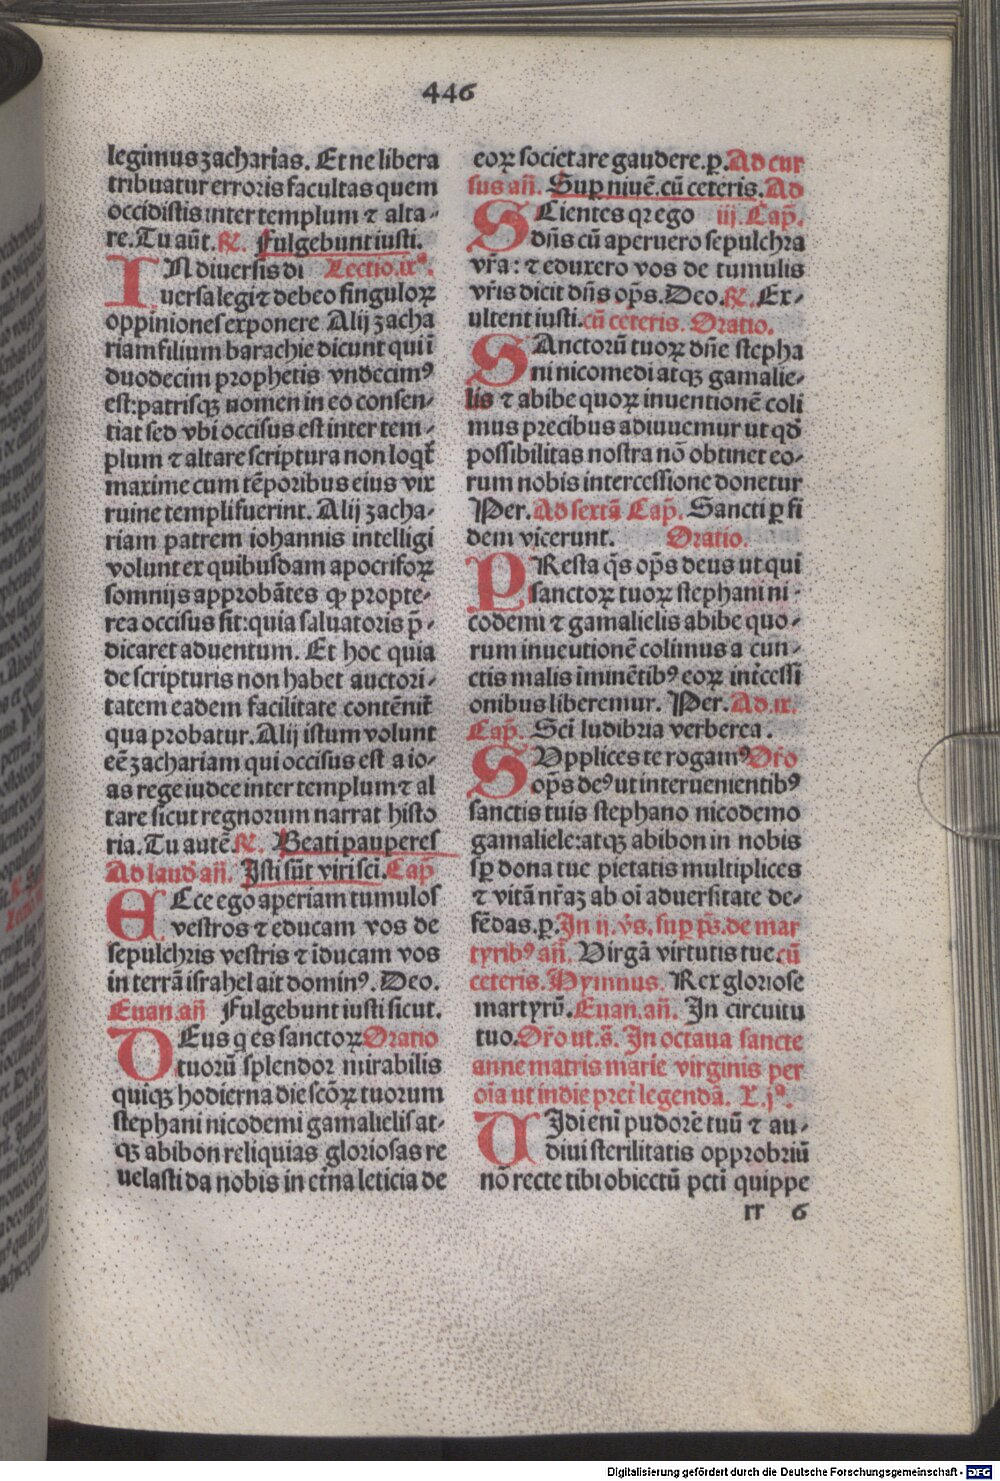 446
legimus zacharias. Et ne libera
tribuatur erroris facultas quem
occidistis inter templum ⁊ alta-
re. Tu aūt. ℟. Fulgebunt iusti.
IN diuersis di Lectio.ixª.
uersa legi ⁊ debeo singuloꝝ
oppiniones exponere Alij zacha
riam filium barachie dicunt qui ī
duodecim prophetis vndecimꝰ
est: patrisqꝫ nomen in eo consen-
tiat sed vbi occisus est inter tem-
plum ⁊ altare scriptura non loqt̄
maxime cum tēporibus eius vix
ruine templi fuerint. Alij zacha-
riam patrem iohannis intelligi
volunt ex quibusdam apocrifoꝝ
somnijs approbātes ꝙ propte-
rea occisus sit: quia saluatoris p̄-
dicaret aduentum. Et hoc quia
de scripturis non habet auctori-
tatem eadem facilitate contēnit̄
qua probatur. Alij istum volunt
eē zachariam qui occisus est a io-
as rege iudee inter templum ⁊ al
tare sicut regnorum narrat histo
ria. Tu autē. ℟. Beati pauperes
Ad laud̄ añ. Isti sūt viri sc̄i. Cap̄
ECce ego aperiam tumulos
vestros ⁊ educam vos de
sepulchris vestris ⁊ īducam vos
in terrā israhel ait dominꝰ. Deo.
Euan. añ Fulgebunt iusti sicut.
DEus q es sanctoꝝ Oratio
tuorū splendor mirabilis
quiqꝫ hodierna die scōꝝ tuorum
stephani nicodemi gamalielis at-
qꝫ abibon reliquias gloriosas re
uelasti da nobis in et̄na leticia de
eoꝝ societare gaudere. p. Ad cur
sus añ. Suꝑ niuē. cū ceteris. Ad
SCientes qꝛ ego iij. Cap̄.
dn̄s cū aperuero sepulchra
vr̄a: ⁊ eduxero vos de tumulis
vr̄is dicit dn̄s op̄s. Deo. ℟. Ex-
ultent iusti. cū ceteris. Oratio.
SAnctorū tuoꝝ dn̄e stepha
ni nicomedi atqꝫ gamalie-
lis ⁊ abibe quoꝝ inuentionē coli
mus precibus adiuuemur ut qd̄
possibilitas nostra nō obtinet eo-
rum nobis intercessione donetur
Per. Ad sextā Cap̄. Sancti ꝑ fi
dem vicerunt. Oratio.
PResta q̄s op̄s deus ut qui
sanctoꝝ tuoꝝ stephani ni-
codemi ⁊ gamalielis abibe quo-
rum inueutionē colimus a cun-
ctis malis iminētibꝰ eoꝝ int̄cessi
onibus liberemur. Per. Ad. ix.
Cap̄. Sc̄i ludibria verberea.
SVpplices te rogamꝰ Oro
op̄s deꝰ ut interuenientibꝰ
sanctis tuis stephano nicodemo
gamaliele: atqꝫ abibon in nobis
sꝑ dona tue pietatis multiplices
⁊ vitā nr̄aꝫ ab oi aduersitate de-
fēdas. p. In ij. vs̄. suꝑ ps̄. de mar
tyribꝰ añ. Virgā virtutis tue. cū
ceteris. Hymnus. Rex gloriose
martyrū. Euan. añ. In circuitu
tuo. Oro ut. s̄. In octaua sancte
anne matris marie virginis per
oīa ut in die pret̄ legendā. L. jª.
UIdi enī pudorē tuū ⁊ au-
diui sterilitatis opprobriū
nō recte tibi obiectū pcti quippe
rr 6
Digitalisierung gefördert durch die Deutsche Forschungsgemeinschaft - DFG